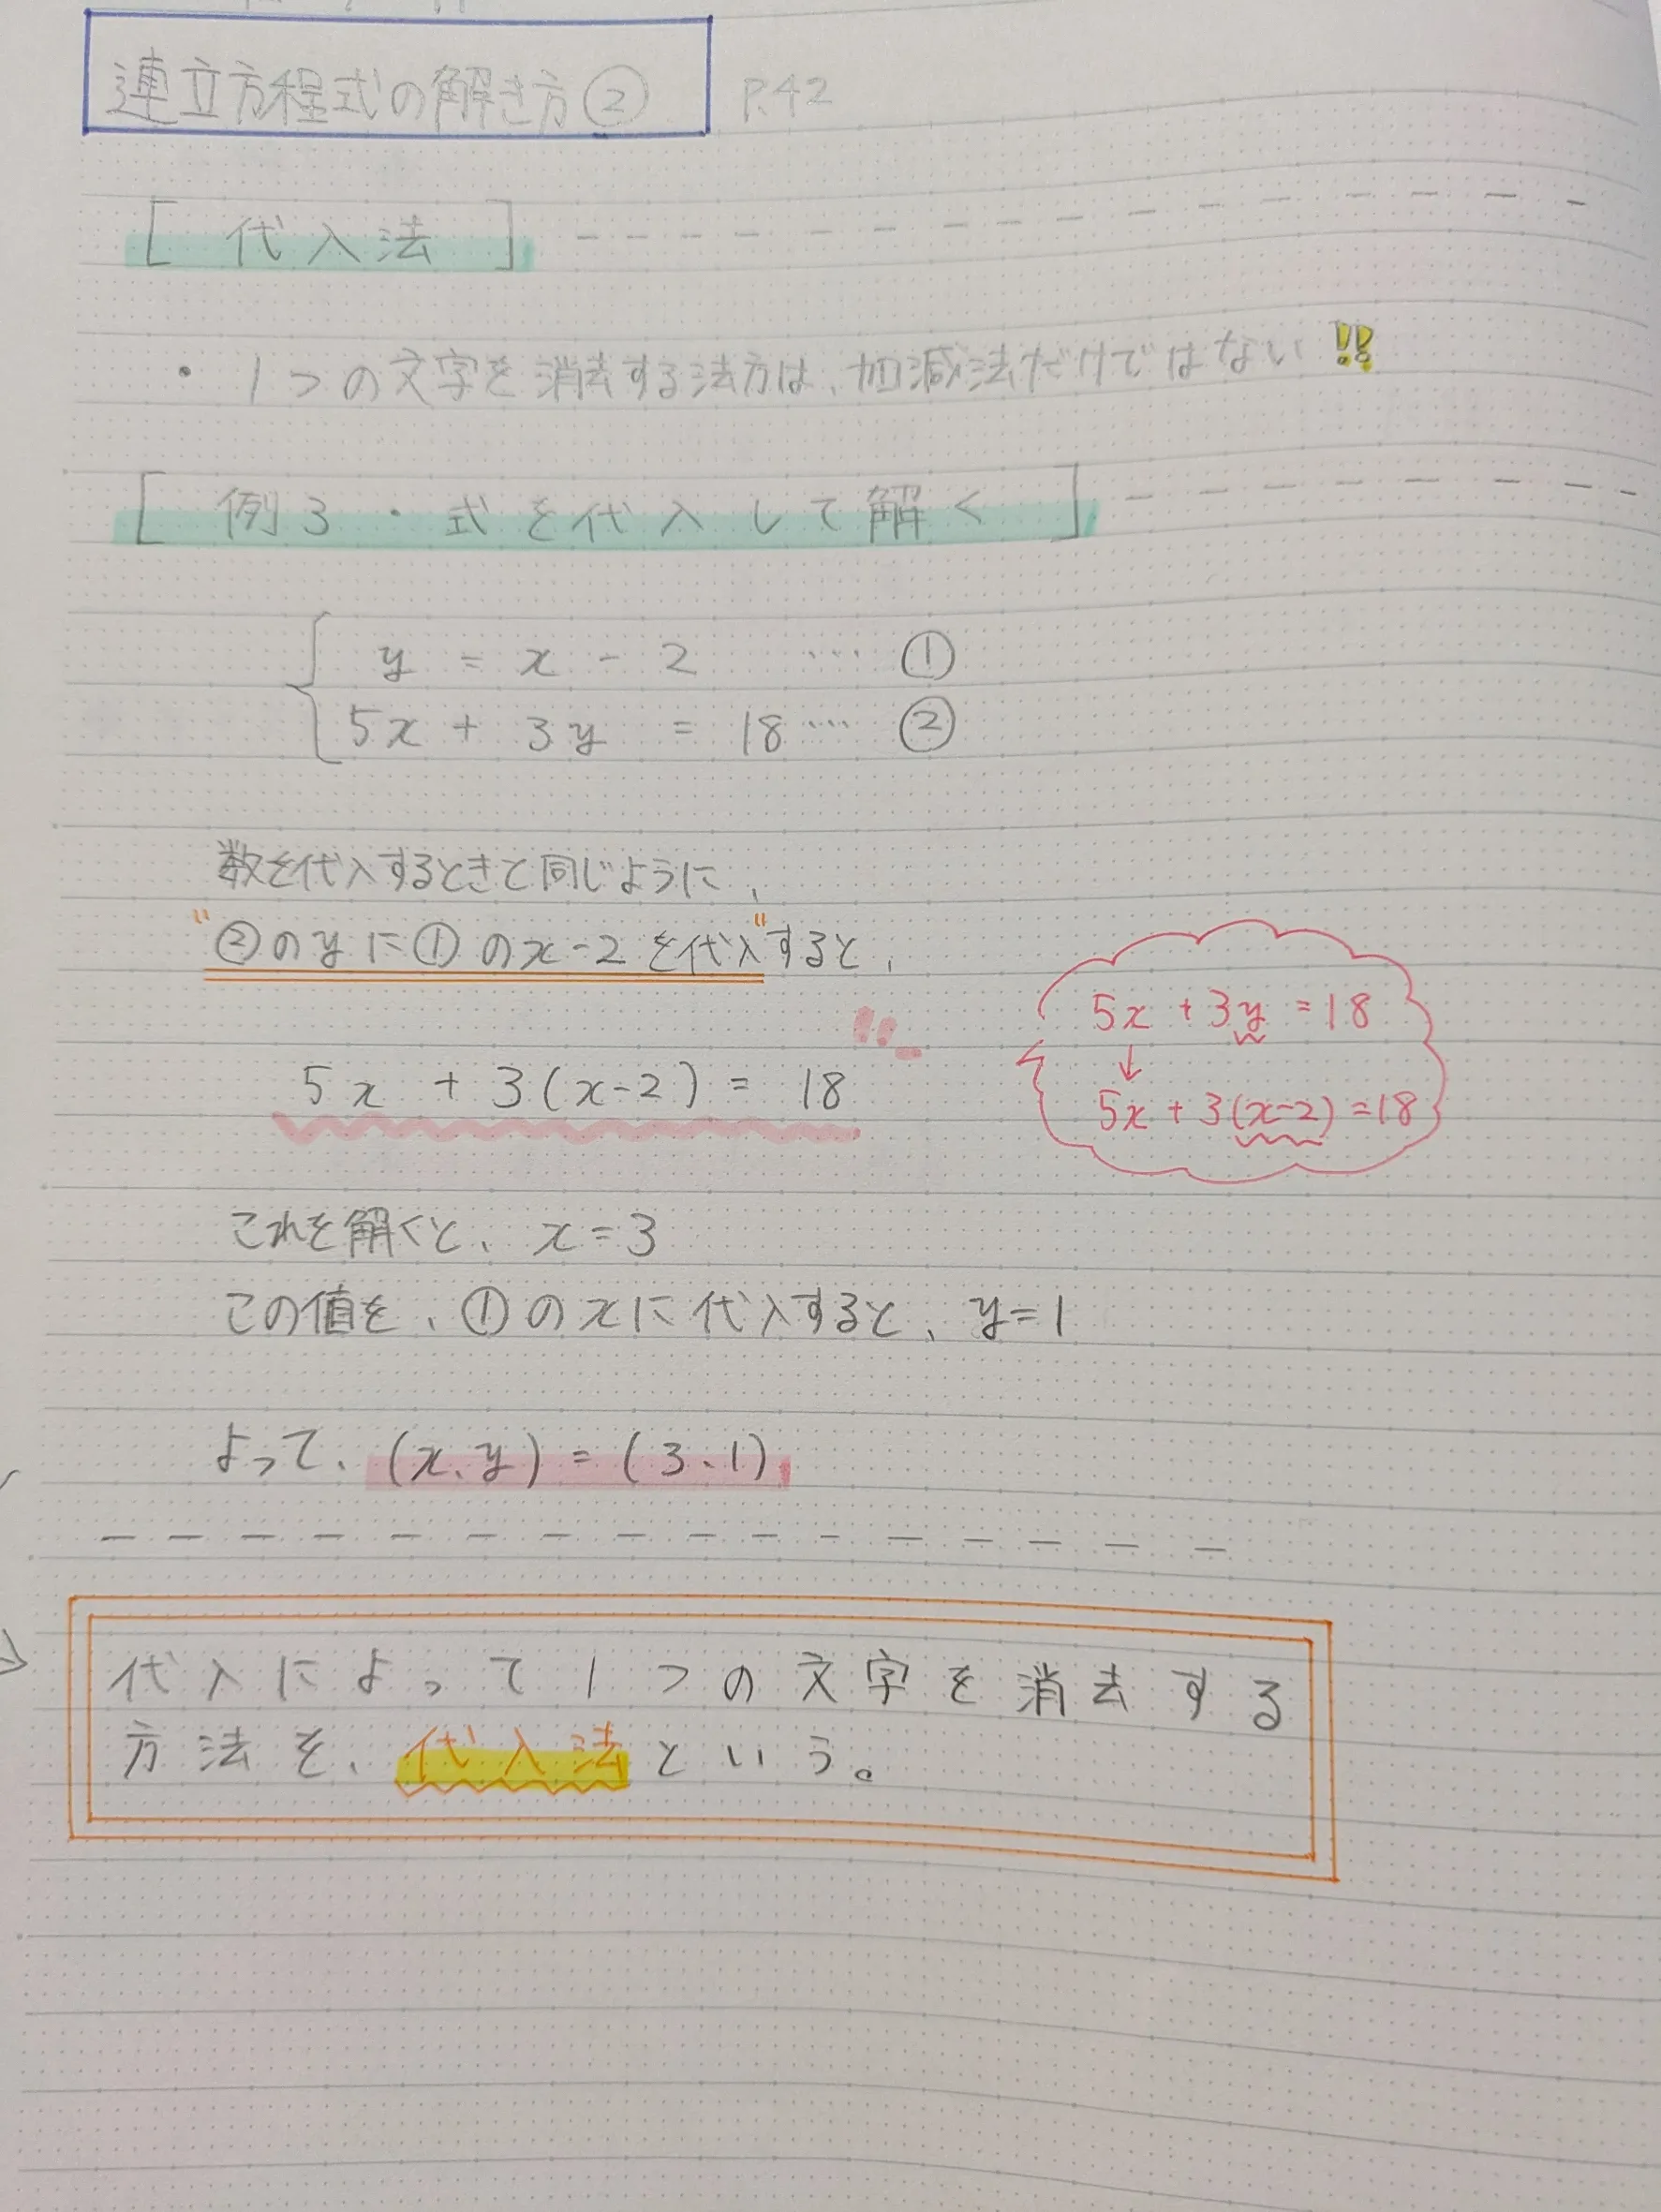 連立方程式の解き方② P.42
[ 代入法 ]
・1つの文字を消去する法方は、加減法だけではない!!
[ 例3・式を代入して解く ]
y = x - 2 … ①
5x + 3y = 18 … ②
数を代入するときと同じように、
"②のyに①のx-2を代入"すると、
5x + 3(x-2) = 18
5x + 3y = 18
↓
5x + 3(x-2) = 18
これを解くと、x=3
この値を、①のxに代入すると、y=1
よって、(x、y) = (3、1)
代入によって1つの文字を消去する
方法を、代入法という。